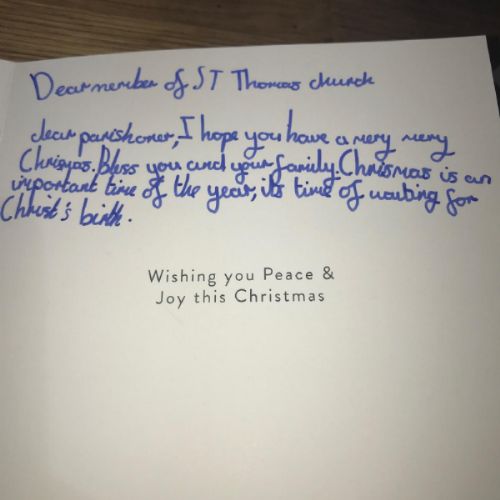 Dear member of ST Thomas church
dear parishoner, I hope you have a mery mery
Chrismas. Bless you and your family. Chrismas is an
important time of the year, it's time of waiting for
Christ's birth.
Wishing you Peace &
Joy this Christmas